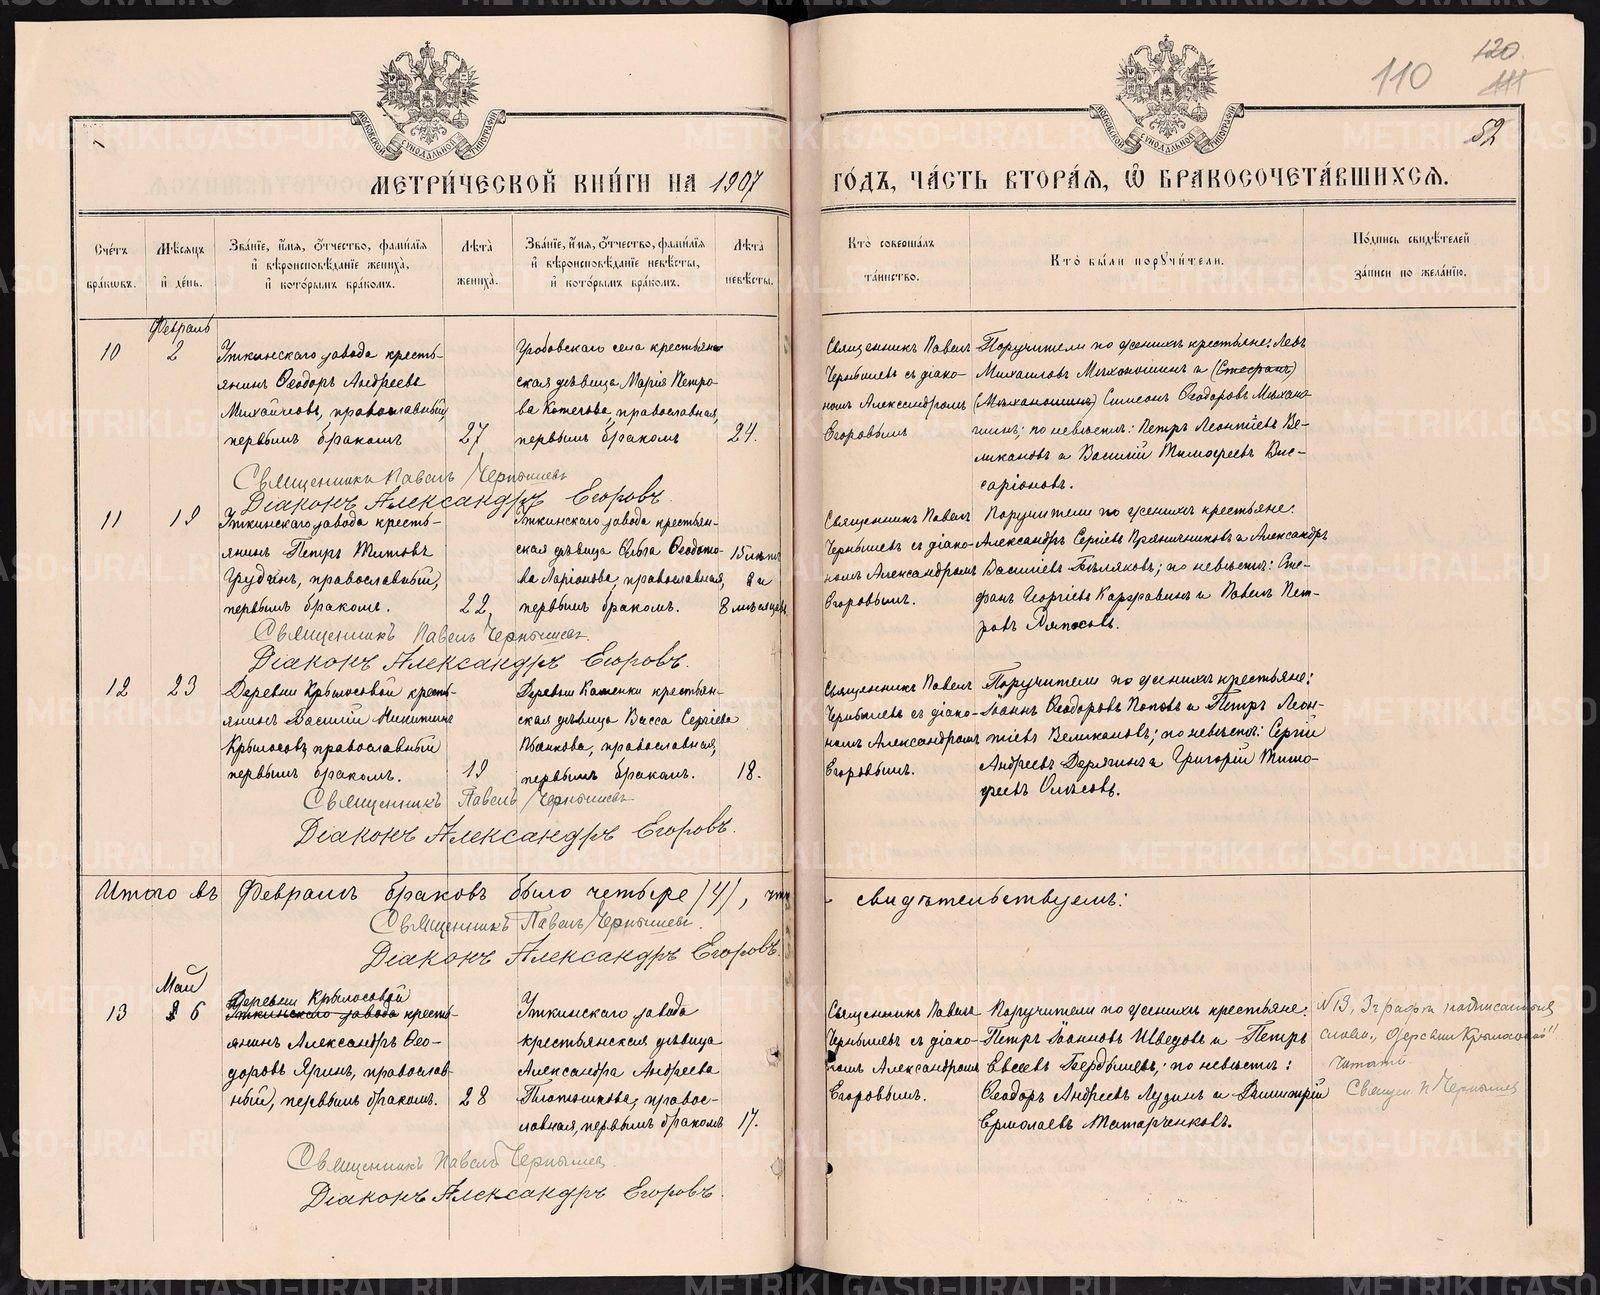 110
120
52
МОСКОВСКОЙ СѴНОДАЛЬНОЙ ТИПОГРАФІИ
МОСКОВСКОЙ СѴНОДАЛЬНОЙ ТИПОГРАФІИ
МЕТРИ́ЧЕСКОЙ КНИ́ГИ НА 1907
ГО́ДЪ, ЧА́СТЬ ВТОРА́Ѧ, Ѿ БРАКОСОЧЕТА́ВШИХСѦ.
Сче́тъ бра́кѡвъ.
Мѣ́сѧцъ и҆ де́нь.
Зва́нїе, и҆́мѧ, ѻ҆́тчество, фами́лїѧ и҆ вѣроисповѣ́данїе жениха̀, и҆ кото́рымъ бра́комъ.
Лѣ́та жениха̀.
Зва́нїе, и҆́мѧ, ѻ҆́тчество, фами́лїѧ и҆ вѣроисповѣ́данїе невѣ́сты, и҆ кото́рымъ бра́комъ.
Лѣ́та невѣ́сты.
Кто̀ соверша́лъ та́инство.
Кто̀ бы́ли порꙋчи́тели.
По́дпись свидѣ́телей за́писи по жела́нїю.
Февраль
10
2
Уткинскаго завода кресть-
янинъ Ѳеодоръ Андреевъ
православный,
первымъ бракомъ
27
Гробовскаго села крестьян-
ская дѣвица Марія Петро-
ва православная,
первымъ бракомъ
24.
Священникъ Павелъ
Чернышевъ съ діако-
номъ Александромъ
Егоровымъ
Поручители по женихѣ крестьяне: Левъ
Михаиловъ Мыханошинъ и (Стефанъ)
(Мыханошинъ) Симеонъ Ѳеодоровъ Мыхано-
шинъ; по невѣстѣ: Петръ Леонтіевъ Ве-
ликановъ и Василій Тимоѳеевъ Вис-
саріоновъ.
Священникъ Павелъ Чернышевъ
Діаконъ Александръ Егоровъ.
11
19
Уткинскаго завода кресть-
янинъ Петръ Титовъ
Грудинъ, православный,
первымъ бракомъ.
22,
Уткинскаго завода крестьян-
ская дѣвица Ольга Ѳеодото-
ва Ларіонова, православная,
первымъ бракомъ.
15 лѣтъ
8 и
8 мѣсяцевъ
Священникъ Павелъ
Чернышевъ съ діако-
номъ Александромъ
Егоровымъ.
Поручители по женихѣ крестьяне:
Александръ Сергіевъ Пряничниковъ и Александръ
Василіевъ Бѣляковъ; по невѣстѣ: Сте-
фанъ Георгіевъ и Павелъ Пет-
ровъ
Священникъ Павелъ Чернышевъ.
Діаконъ Александръ Егоровъ.
12
23
Деревни Крылосовой кресть-
янинъ Василій Никитинъ
Крылосовъ, православный
первымъ бракомъ.
19
Деревни Каменки крестьян-
ская дѣвица Васса Сергіева
Пьянкова, православная,
первымъ бракомъ.
18.
Священникъ Павелъ
Чернышевъ съ діако-
номъ Александромъ
Егоровымъ.
Поручители по женихѣ крестьяне:
Іоаннъ Ѳеодоровъ Поповъ и Петръ Леон-
тіевъ Великановъ; по невѣстѣ: Сергій
Андреевъ Дерягинъ и Григорій Тимо-
ѳеевъ
Священникъ Павелъ Чернышевъ
Діаконъ Александръ Егоровъ.
Итого въ Февралѣ браковъ было четыре (4), что
свидѣтельствуемъ:
Священникъ Павелъ Чернышевъ.
Діаконъ Александръ Егоровъ.
Май
13
6
Деревни Крылосовой
Уткинскаго завода кресть-
янинъ Александръ Ѳео-
доровъ Яринъ, православ-
ный, первымъ бракомъ.
28
Уткинскаго завода
крестьянская дѣвица
Александра Андреева
Плотникова, правос-
лавная, первымъ бракомъ
17.
Священникъ Павелъ
Чернышевъ съ діако-
номъ Александромъ
Егоровымъ.
Поручители по женихѣ крестьяне:
Петръ Іоанновъ Шведовъ и Петръ
Евсеевъ Бердышевъ; по невѣстѣ:
Ѳеодоръ Андреевъ Лузинъ и Димитрій
Ермолаевъ Татарченковъ.
N 13, 3 графа надписанныя
слова „Деревни Крылосовой"
читать
Священ П Чернышев
Священникъ Павелъ Чернышев.
Діаконъ Александръ Егоровъ.
METRIKI.GASO-URAL.RU